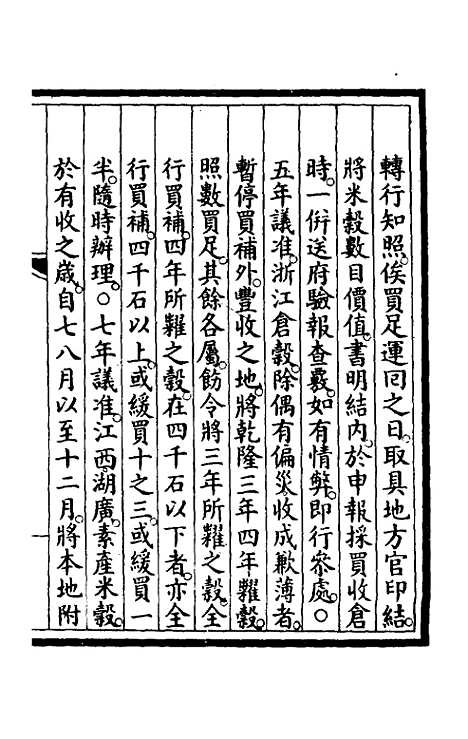 轉行知照。俟買足運囘之日。取具地方官印結。
將米穀數目價值。書明結內。於申報採買收倉
時。一併送府驗報查覈。如有情弊。卽行參處。○
五年議准。浙江倉穀。除偶有偏災收成歉薄者。
暫停買補外。豐收之地。將乾隆三年四年糶穀。
照數買足。其餘各屬。飭令將三年所糶之穀。全
行買補。四年所糶之穀。在四千石以下者。亦全
行買補。四千石以上。或緩買十之三。或緩買一
半。隨時辦理。○七年議准。江西湖廣。素產米穀。
於有收之歲。自七八月以至十二月。將本地附